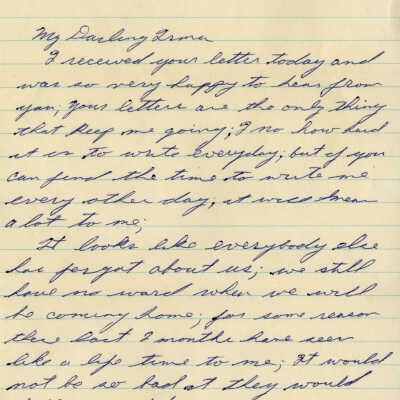 My Darling Irma
I received your letter today and
was so very happy to hear from
you; your letters are the only thing
that keep me going; I no how hard
it is to write everyday; but if you
can find the time to write me
every other day; it will mean
a lot to me;
It looks like everybody else
has forgot about us; we still
have no word when we will
be coming home; for some reason
these last 2 months have seem
like a life time to me; It would
not be so bad if they would